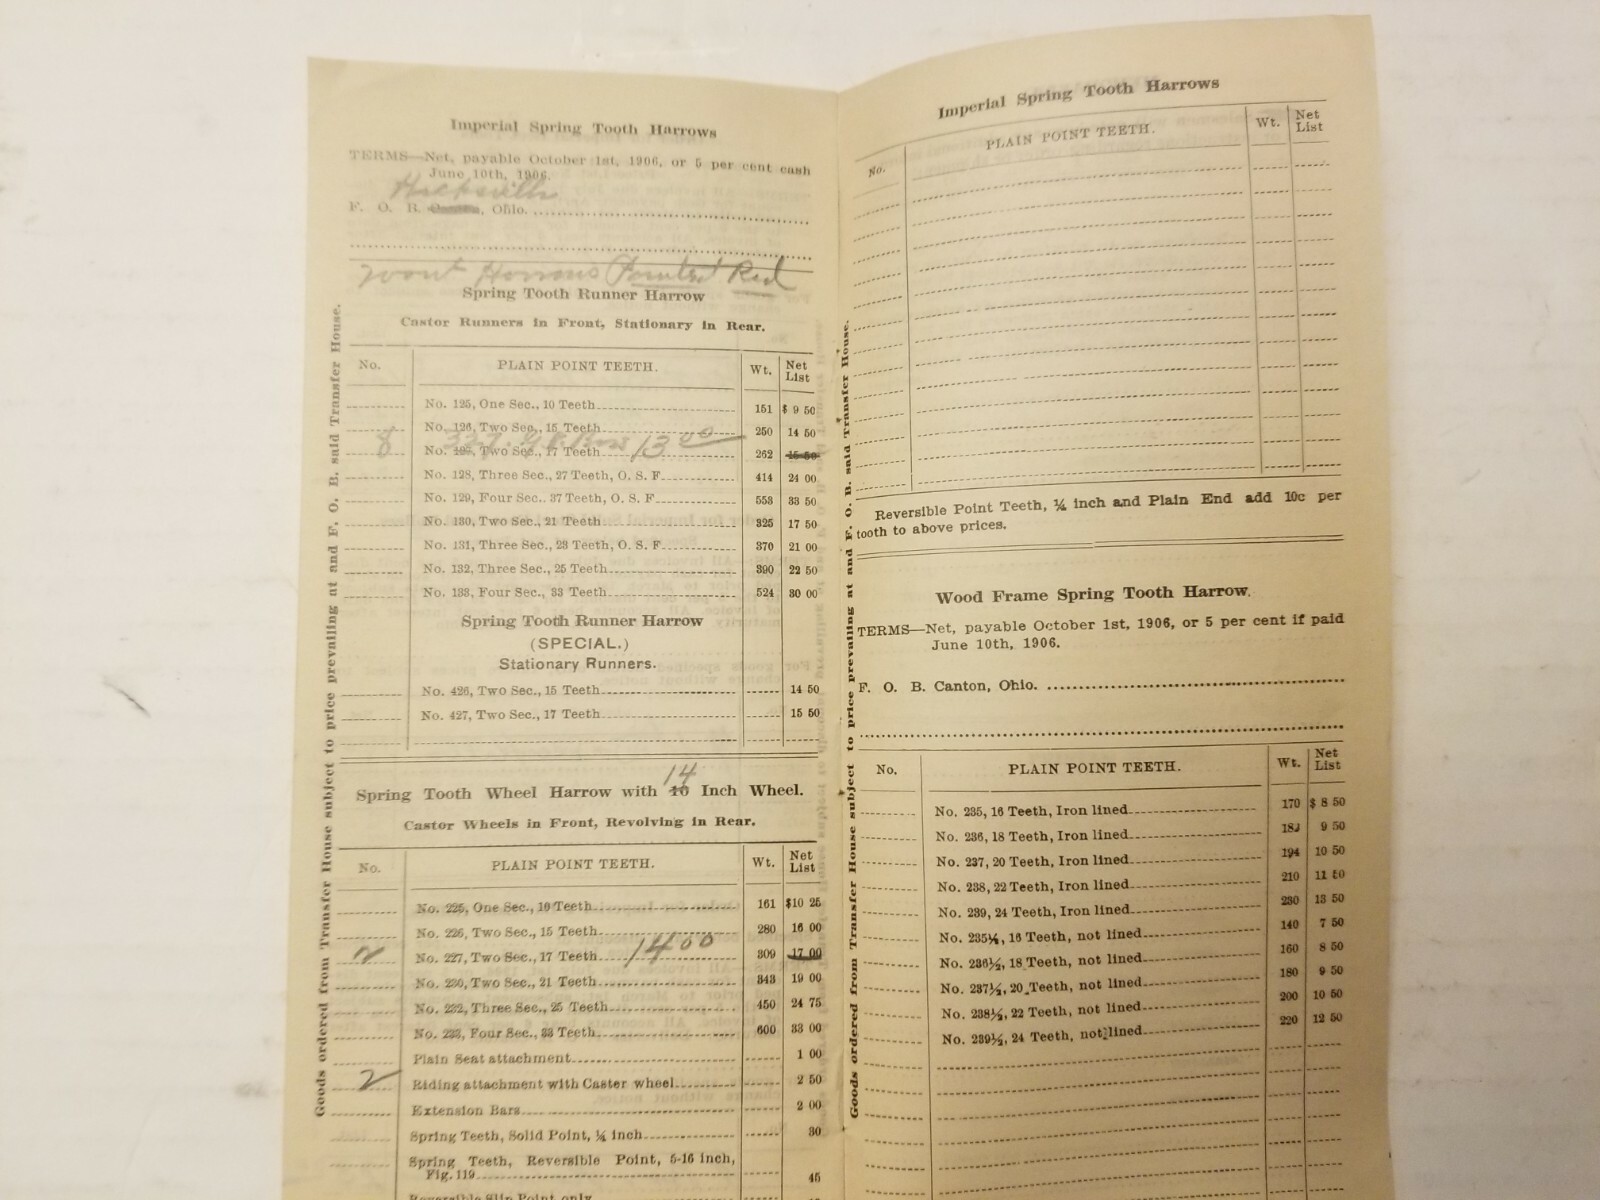 Imperial Spring Tooth Harrows
TERMS—Net, payable October 1st, 1906, or 5 per cent cash
June 10th, 1906.
Hicksville
F. O. B. Canton, Ohio.
want Harrows Painted Red
Spring Tooth Runner Harrow
Castor Runners in Front, Stationary in Rear.
No. PLAIN POINT TEETH. Wt. Net List
No. 125, One Sec., 10 Teeth 151 $ 9 50
No. 126, Two Sec., 15 Teeth 250 14 50
8 327 13 00
No. 127, Two Sec., 17 Teeth 262 15 50
No. 128, Three Sec., 27 Teeth, O. S. F. 414 24 00
No. 129, Four Sec. 37 Teeth, O. S. F. 553 33 50
No. 130, Two Sec., 21 Teeth 325 17 50
No. 131, Three Sec., 23 Teeth, O. S. F. 370 21 00
No. 132, Three Sec., 25 Teeth 390 22 50
No. 133, Four Sec., 33 Teeth 524 30 00
Spring Tooth Runner Harrow
(SPECIAL.)
Stationary Runners.
No. 426, Two Sec., 15 Teeth 14 50
No. 427, Two Sec., 17 Teeth 15 50
14
Spring Tooth Wheel Harrow with 16 Inch Wheel.
Castor Wheels in Front, Revolving in Rear.
No. PLAIN POINT TEETH. Wt. Net List
No. 225, One Sec., 10 Teeth 161 $10 25
No. 226, Two Sec., 15 Teeth 280 16 00
2 No. 227, Two Sec., 17 Teeth 14 00 309 17 00
No. 230, Two Sec., 21 Teeth 343 19 00
No. 232, Three Sec., 25 Teeth 450 24 75
No. 233, Four Sec., 33 Teeth 600 33 00
Plain Seat attachment 1 00
2 Riding attachment with Caster wheel 2 50
Extension Bars 2 00
Spring Teeth, Solid Point, ¼ inch 30
Spring Teeth, Reversible Point, 5-16 inch,
Fig. 119 45
Reversible Slip Point only
Goods ordered from Transfer House subject to price prevailing at and F. O. B. said Transfer House.
Imperial Spring Tooth Harrows
No. PLAIN POINT TEETH. Wt. Net List
Reversible Point Teeth, ¼ inch and Plain End add 10c per
tooth to above prices.
Wood Frame Spring Tooth Harrow.
TERMS—Net, payable October 1st, 1906, or 5 per cent if paid
June 10th, 1906.
F. O. B. Canton, Ohio.
No. PLAIN POINT TEETH. Wt. Net List
No. 235, 16 Teeth, Iron lined 170 $ 8 50
No. 236, 18 Teeth, Iron lined 9 50
No. 237, 20 Teeth, Iron lined 194 10 50
No. 238, 22 Teeth, Iron lined 210 11 50
No. 239, 24 Teeth, Iron lined 230 13 50
No. 235½, 16 Teeth, not lined 140 7 50
No. 236½, 18 Teeth, not lined 160 8 50
No. 237½, 20 Teeth, not lined 180 9 50
No. 238½, 22 Teeth, not lined 200 10 50
No. 239½, 24 Teeth, not lined 220 12 50
Goods ordered from Transfer House subject to price prevailing at and F. O. B. said Transfer House.